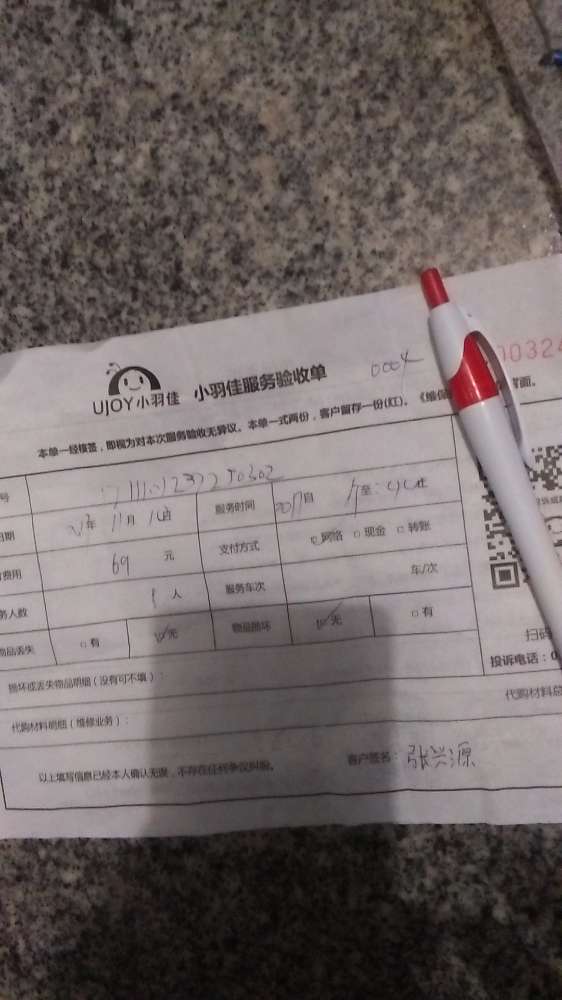 UJOY小羽佳 小羽佳服务验收单 0004
00324
本单一经核签，即视为对本次服务验收无异议。本单一式两份，客户留存一份(红)。《维保
背面。
号
日期 年 11月 日 服务时间 自 至：
费用 69 元 支付方式 网络 □ 现金 □ 转账
务人数 1 人 服务车次 车/次
物品丢失 □ 有 无 物品损坏 无 □ 有
扫码
投诉电话：0
损坏或丢失物品明细（没有可不填）：
代购材料明细（维修业务）： 代购材料总
以上填写信息已经本人确认无误，不存在任何争议纠纷。 客户签名：张兴源